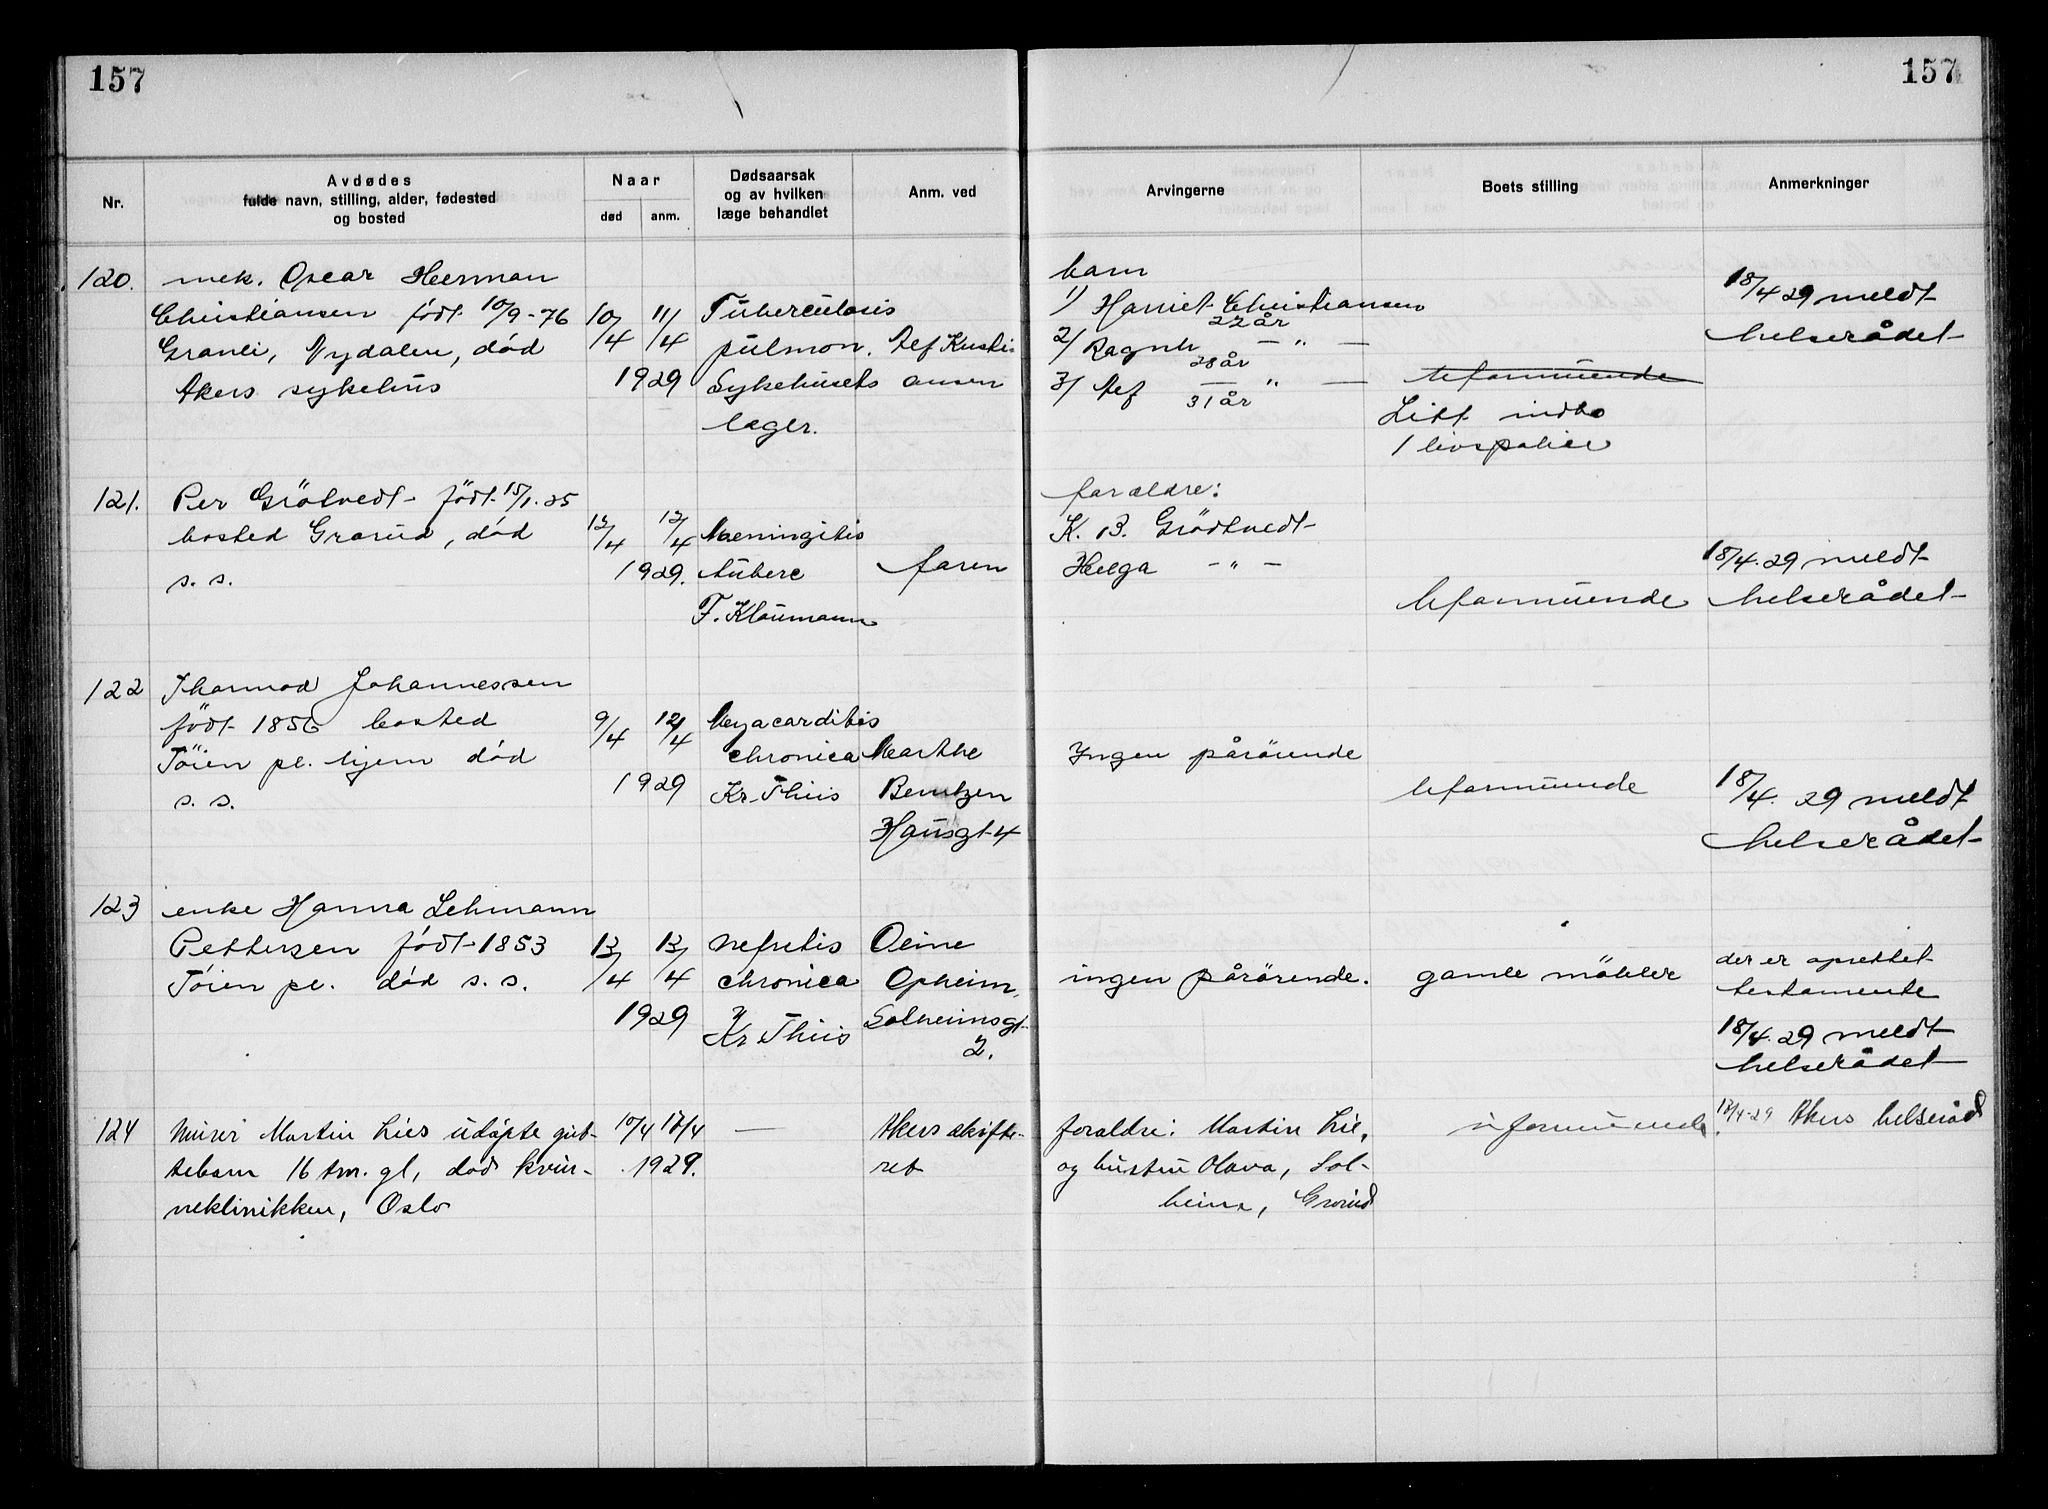 157
157
Nr.
Avdødes
fulde navn, stilling, alder, fødested
og bosted
Naar
død
anm.
Dødsaarsak
og av hvilken
læge behandlet
Anm. ved
Arvingerne
Boets stilling
Anmerkninger
120. mek. Oscar Herman
Christiansen født 10/9-76
Granli, Nydalen, død
Akers sykehus
10/4 11/4
1929
Tuberculosis
pulmon.
Sykehusets
læger.
Alf Kristi-
ansen
barn
1) Harriet Christiansen
22 år
2) Ragnh — " —
28 år
3) Alf — " —
31 år
uformuende
Litt indbo
1 livspolice
18/4 29 meldt
helserådet
121. Per Grötvedt født 15/1.25
bosted Grorud, död
s. s.
12/4 12/4
1929.
Meningitis
tuberc
F. Klaumann
faren
foreldre:
K. B. Grödtvedt
Helga — " —
uformuende
18/4.29 meldt
helserådet
122 Thormod Johannessen
födt 1856 bosted
Töien pl. hjem död
s. s.
9/4 12/4
1929
Myocarditis
chronica
Kr. Thiis
Marthe
Berntzen
Hausgt 4
Ingen pårörende
uformuende
18/4. 29 meldt
helserådet
123 enke Hanna Lehmann
Pettersen födt 1853
Töien pl. död s. s.
13/4 13/4
1929
nefritis
chronica
Kr Thiis
Oline
Opheim,
Solheimsgt
2.
ingen pårörende.
gamle möbler
der er oprettet
testamente
18/4.29 meldt
helserådet
124 Murer Martin Lies udöpte gut-
tebarn 16 tm. gl, död kvin-
neklinikken, Oslo
10/4 17/4
1929.
—
Akers skifte-
ret
foreldre: Martin Lie,
og hustru Olava, Sol-
heim, Grorud
uformuende
18/4-29 Akers helseråd